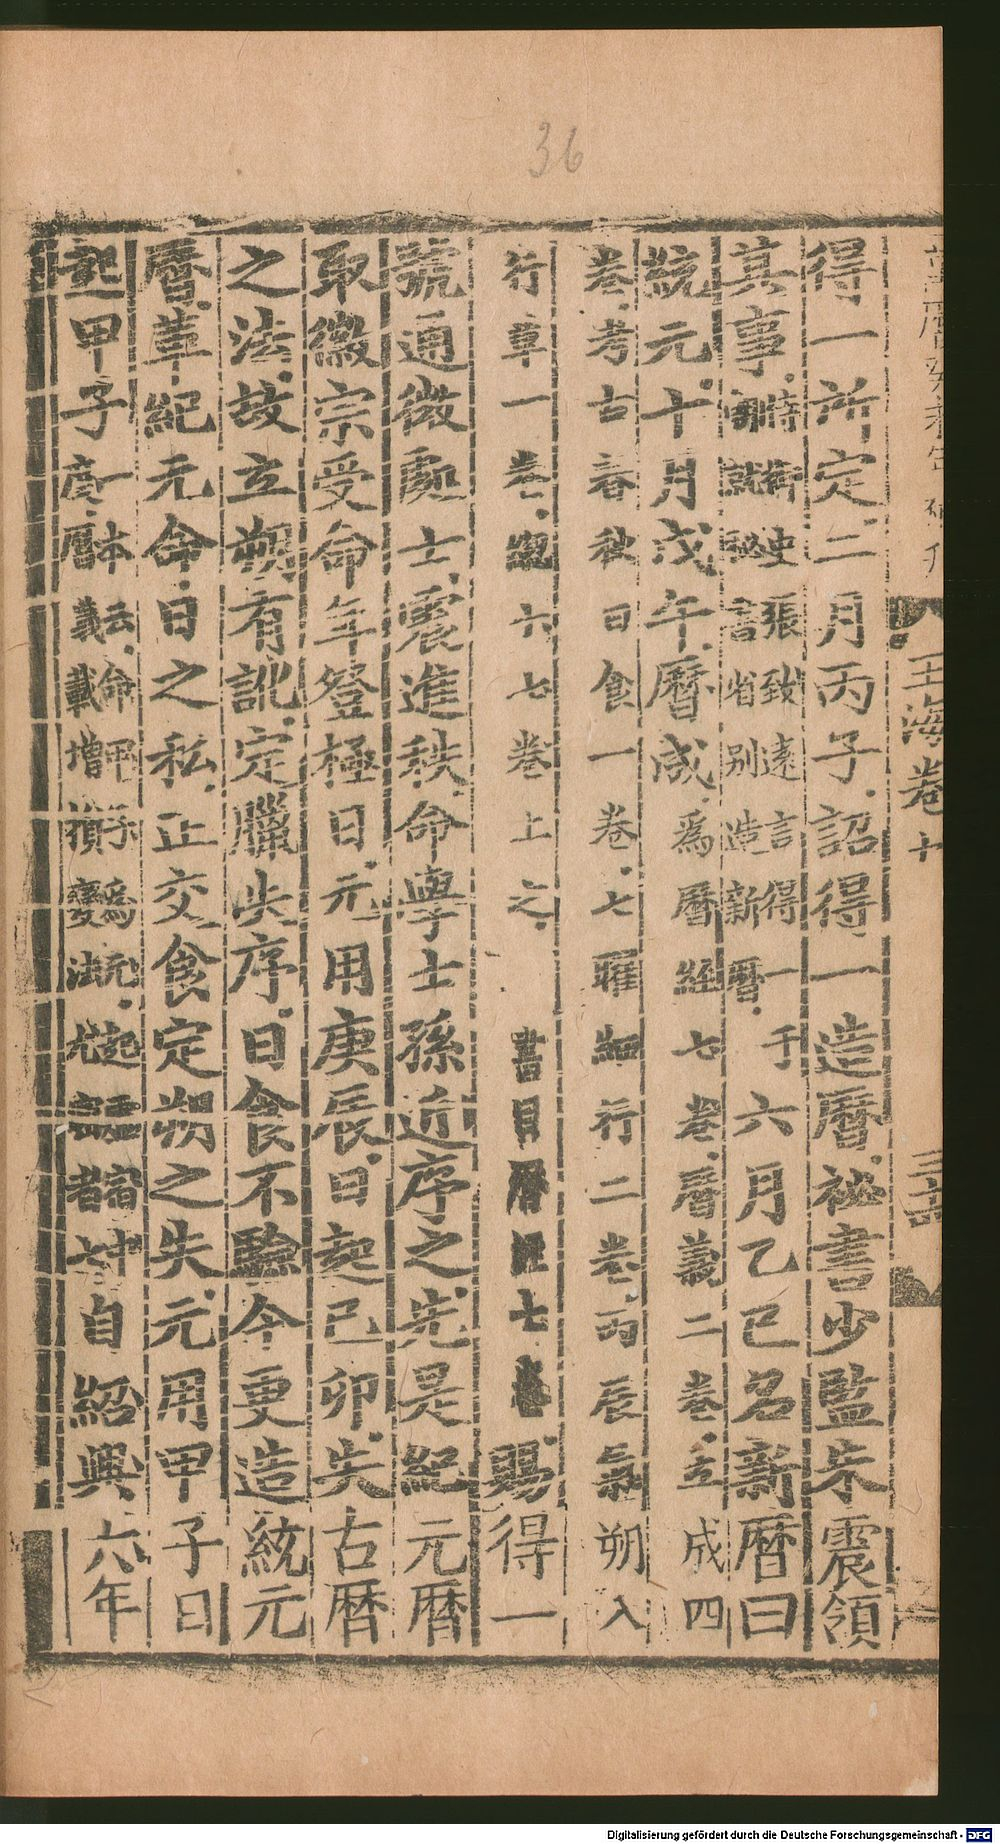 36
玉海卷十
得一所定二月丙子詔得一造曆祕書少監朱震領
其事時侍御史張致遠言得一千六月乙巳名新曆曰
統元十月戊午曆成爲曆經七卷曆議二卷立成四
卷考古春秋日食一卷七曜細行二卷丙辰氣朔入
行草一卷總六七卷上之書目曆經七卷賜得一
號通微處士震進秩命學士孫近序之先是紀元曆
取徽宗受命年登極日元用庚辰日起己卯失古曆
之法故立朔有訛定臘失序日食不驗今更造統元
曆革紀元命日之私正交食定朔之失元用甲子日
起甲子一本云命甲子爲元曆義載增損變法自紹興六年
Digitalisierung gefördert durch die Deutsche Forschungsgemeinschaft - DFG